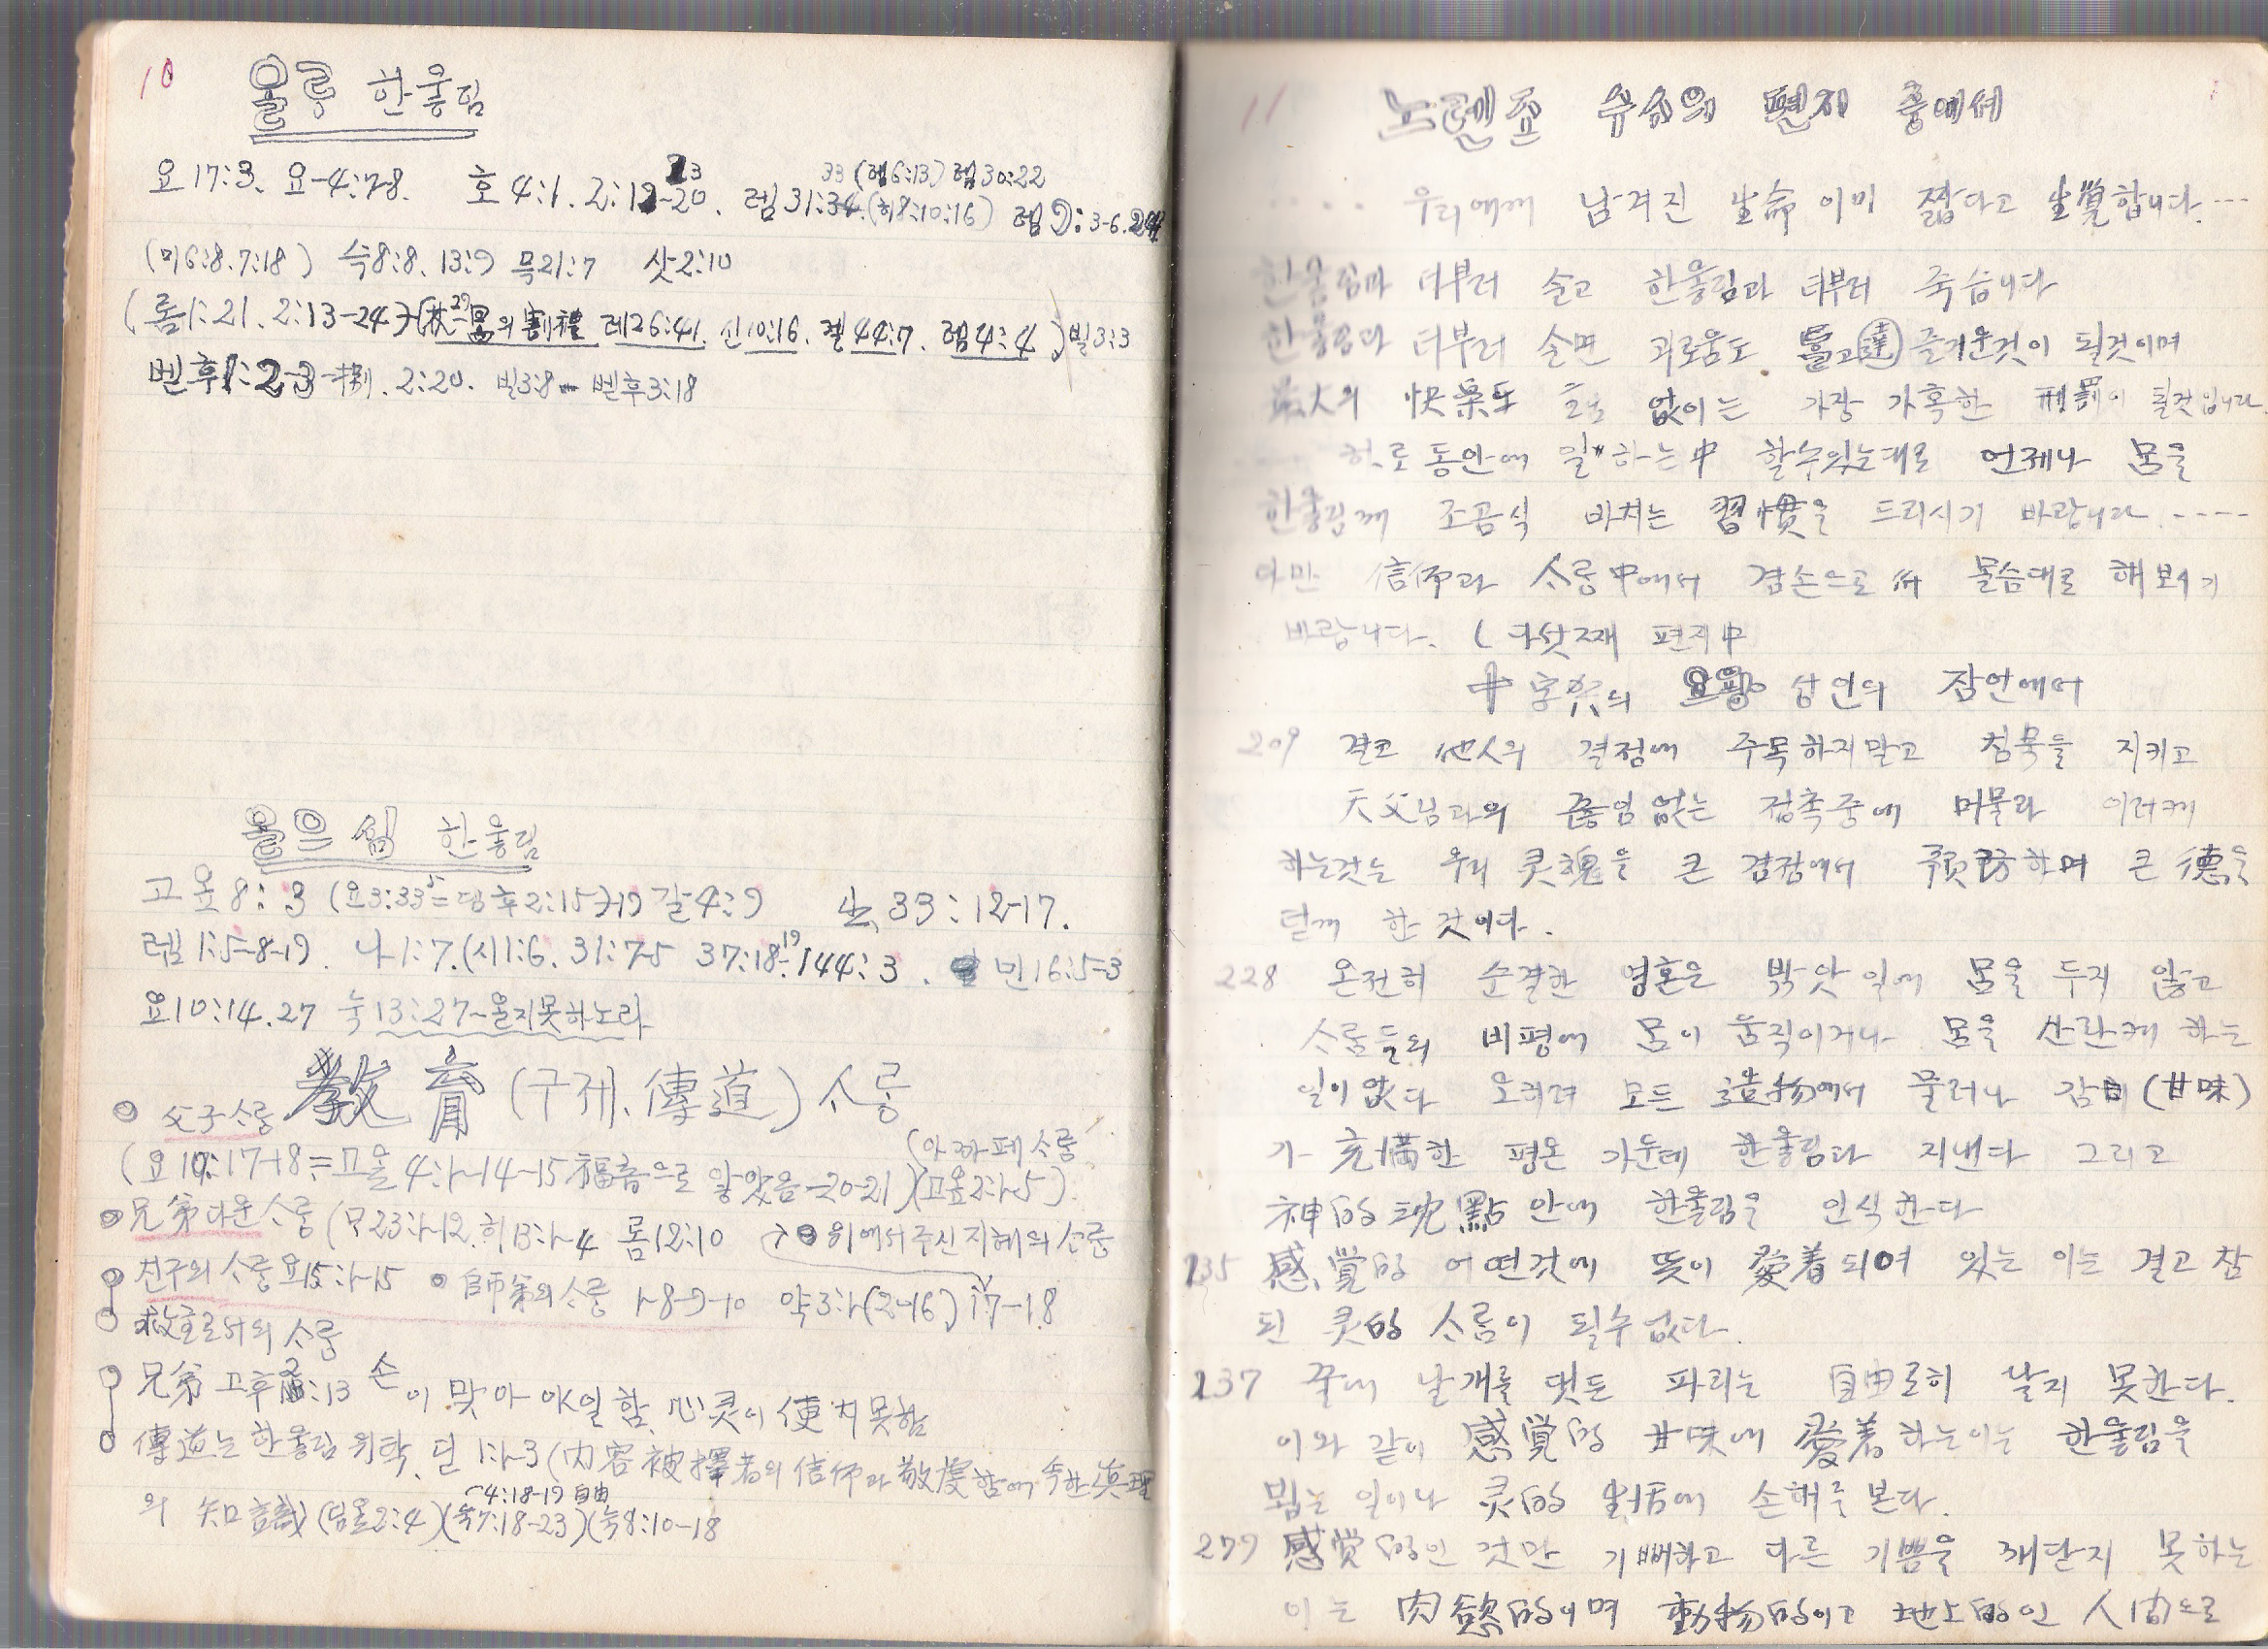 10
욀룽 한욿림
요 17:3. 요-4:7-8. 호 4:1. 2:19-20. 렘 31:34. (히8:10:16) 렘 9:3-6. 24
23 33 (렘6:13) 렘30:22
(미6:8. 7:18) 슥8:8. 13:9 묵21:7 삿2:10
(롬1:21. 2:13-24) 29 의 割禮 레26:41. 신10:16. 겔44:7. 렘4:4) 빌3:3
벧후1:2-3 2:20. 빌3:8 벧후3:18
한욿림
고욮8:3 (요3:33 = 딤후2:15)-19 갈4:9 出 33:12-17.
렘1:5-8-19. 나1:7. (시1:6. 31:7-5 37:18-19 144:3. 민16:5-3
요10:14. 27 눅13:27-욀지못하노라
敎育 (구제、傳道) 소룽
父子소룽
(아까페 소룽)
(요10:17+8 = 고욮4:1-14-15 福音으로 낳았음-20-21) (고욮2:1-5)
兄弟다운 소룽 (마23:1-12. 히13:1-4 롬12:10 위에서 주신 지혜의 소룽
친구의 소룽 요15:1-15 師弟의 소룽 1-8-9-10 약3:1-(2-16) 17-18
救主로서의 소룽
兄弟 고후2:13 손이 맞아야 일함. 心灵이 便치 못함
傳道는 한욿림 위탁. 딛1:1-3 (内容 被擇者의 信仰과 敬虔함에 속한 眞理
4:18-19 自由
의 知識 (딤욮2:4) (눅7:18-23) (눅8:10-18
11
노렌조 수사의 편지 중에서
우리에께 남겨진 生命이미 짧다고 生覚합니다. ---
한욿림과 더부러 술고 한욿림과 더부러 죽습니다
한욿림과 더부러 술면 괴로움도 達 즐거운것이 될것이며
最大의 快樂도 없이는 가장 가혹한 刑罰이 될것입니다
하로동안에 일하는中 할수있는대로 언제나 몸을
한욿림께 조곰식 바치는 習慣을 드리시기 바랍니다. ----
다만 信仰과 소룽中에서 겸손으로써 몰슴대로 해보시기
바랍니다. (다섯째 편지中
十字架의 요왕 성인의 잠언에서
209 결코 他人의 결점에 주목하지말고 침묵을 지키고
天父님과의 끊임없는 접촉중에 머물라 이러케
하는것은 우리 灵魂을 큰 결점에서 預防하며 큰 德을
덛께 한 것이다.
228 온전히 순결한 영혼은 밖앗 일에 몸을 두지 않고
소룸들의 비평에 몸이 움직이거나 몸을 산란케 하는
일이 없다 오히려 모든 造物에서 물러나 감미 (甘味)
가 充満한 평온 가운데 한욿림과 지낸다 그리고
神的 沈黙 안에 한욿림을 인식한다
235 感覚的 어떤것에 뜻이 愛着되여 있는 이는 결코 참
된 灵的 소룸이 될수없다.
237 꿀에 날개를 댓든 파리는 自由로히 날지 못한다.
이와 같이 感覚的 甘味에 愛着하는이는 한욿림을
뵙는 일이나 灵的 生活에 손해를 본다.
279 感覚的인 것만 기뻐하고 다른 기쁨을 깨닫지 못하는
이는 肉慾的이며 動物的이고 地上的인 人間으로